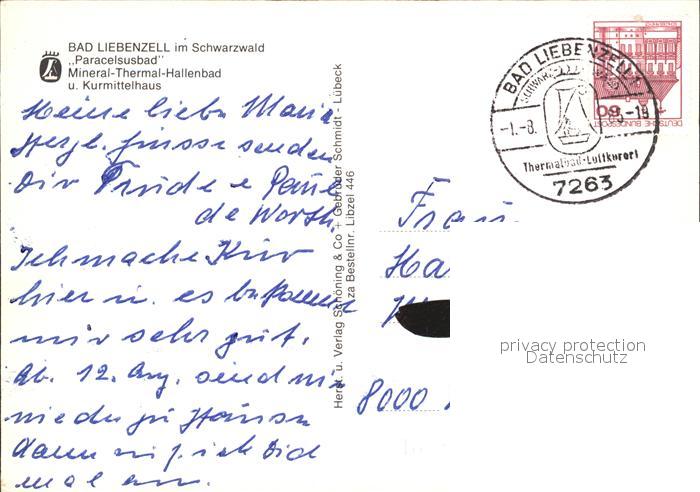 BAD LIEBENZELL im Schwarzwald
„Paracelsusbad"
Mineral-Thermal-Hallenbad
u. Kurmittelhaus
Meine liebe Maria
Herzl. Grüsse senden
Dir Trude e Paul
de Worth.
Ich mache Kur
hier u. es bekommt
mir sehr gut.
Ab. 12. Aug. sind wir
wieder zu Hause
dann ruf ich Dich
mal an.
Herst. u. Verlag Schöning & Co + Gebrüder Schmidt - Lübeck
za Bestellnr. Libzel 446
BAD LIEBENZELL 1
-1.-8.
-18
Thermalbad-Luftkurort
7263
60
DEUTSCHE BUNDESPOST
Frau
Ha
8000
privacy protection
Datenschutz